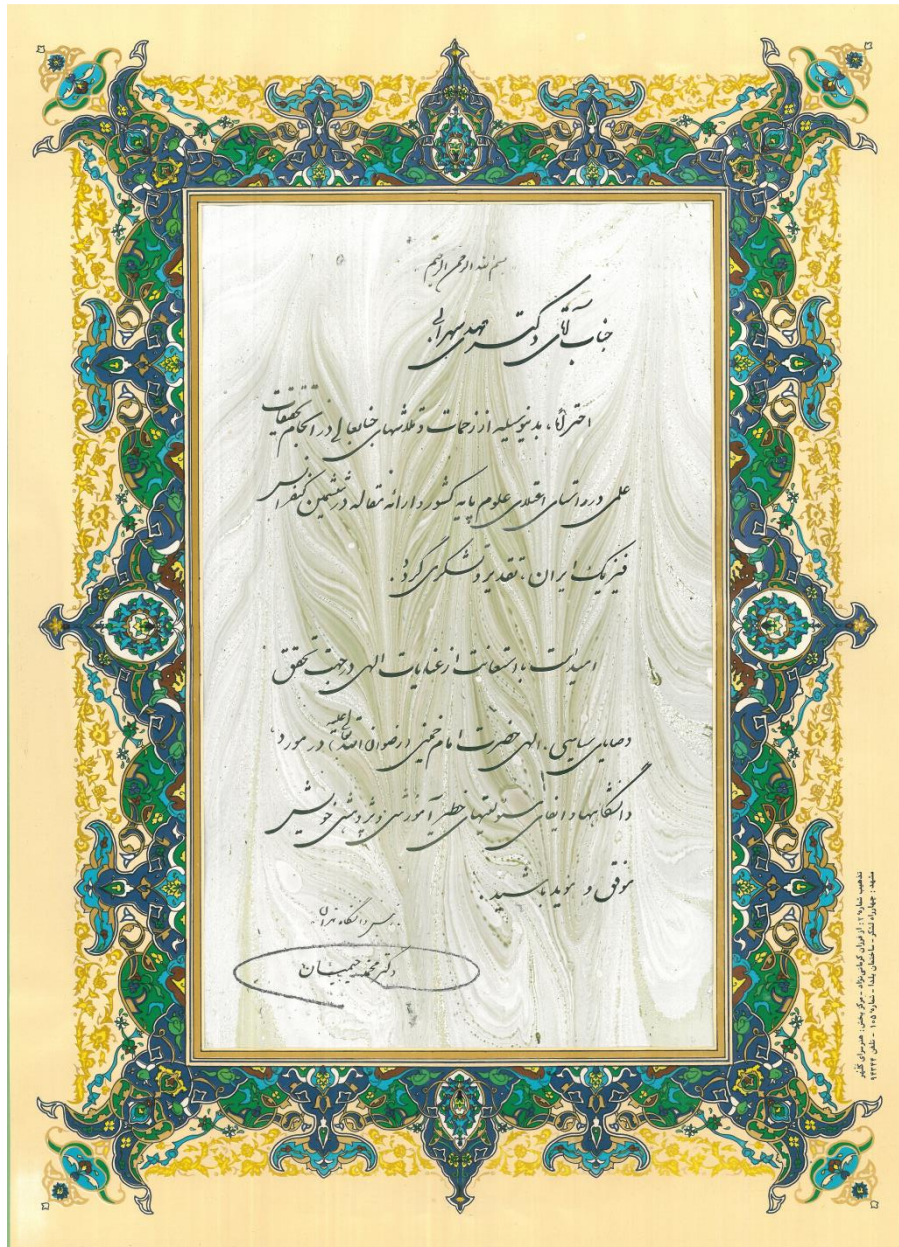 بسم الله الرحمن الرحیم
جناب آقای دکتر مهدی سهرابی
احتراماً، بدینوسیله از زحمات و تلاشهای جنابعالی در انجام تحقیقات
علمی در راستای اعتلای علوم پایه کشور و ارائه مقاله در ششمین کنفرانس
فیزیک ایران، تقدیر و تشکر می گردد.
امید است با استعانت از عنایات الهی در جهت تحقق
وصایای سیاسی، الهی حضرت امام خمینی (رضوان الله علیه) در مورد
دانشگاهها و ایفای مسئولیتهای خطیر آموزشی و پژوهشی خویش
موفق و مؤید باشید.
رئیس دانشگاه تهران
دکتر محمد رحیمیان
تذهیب شماره ۲ : از فوزان کرمانی نژاد - مرکز پخش : هنرسرای گلپر
مشهد : چهارراه لشکر - ساختمان یلدا - شماره ۱۰۵ - تلفن ۹۴۳۲۴